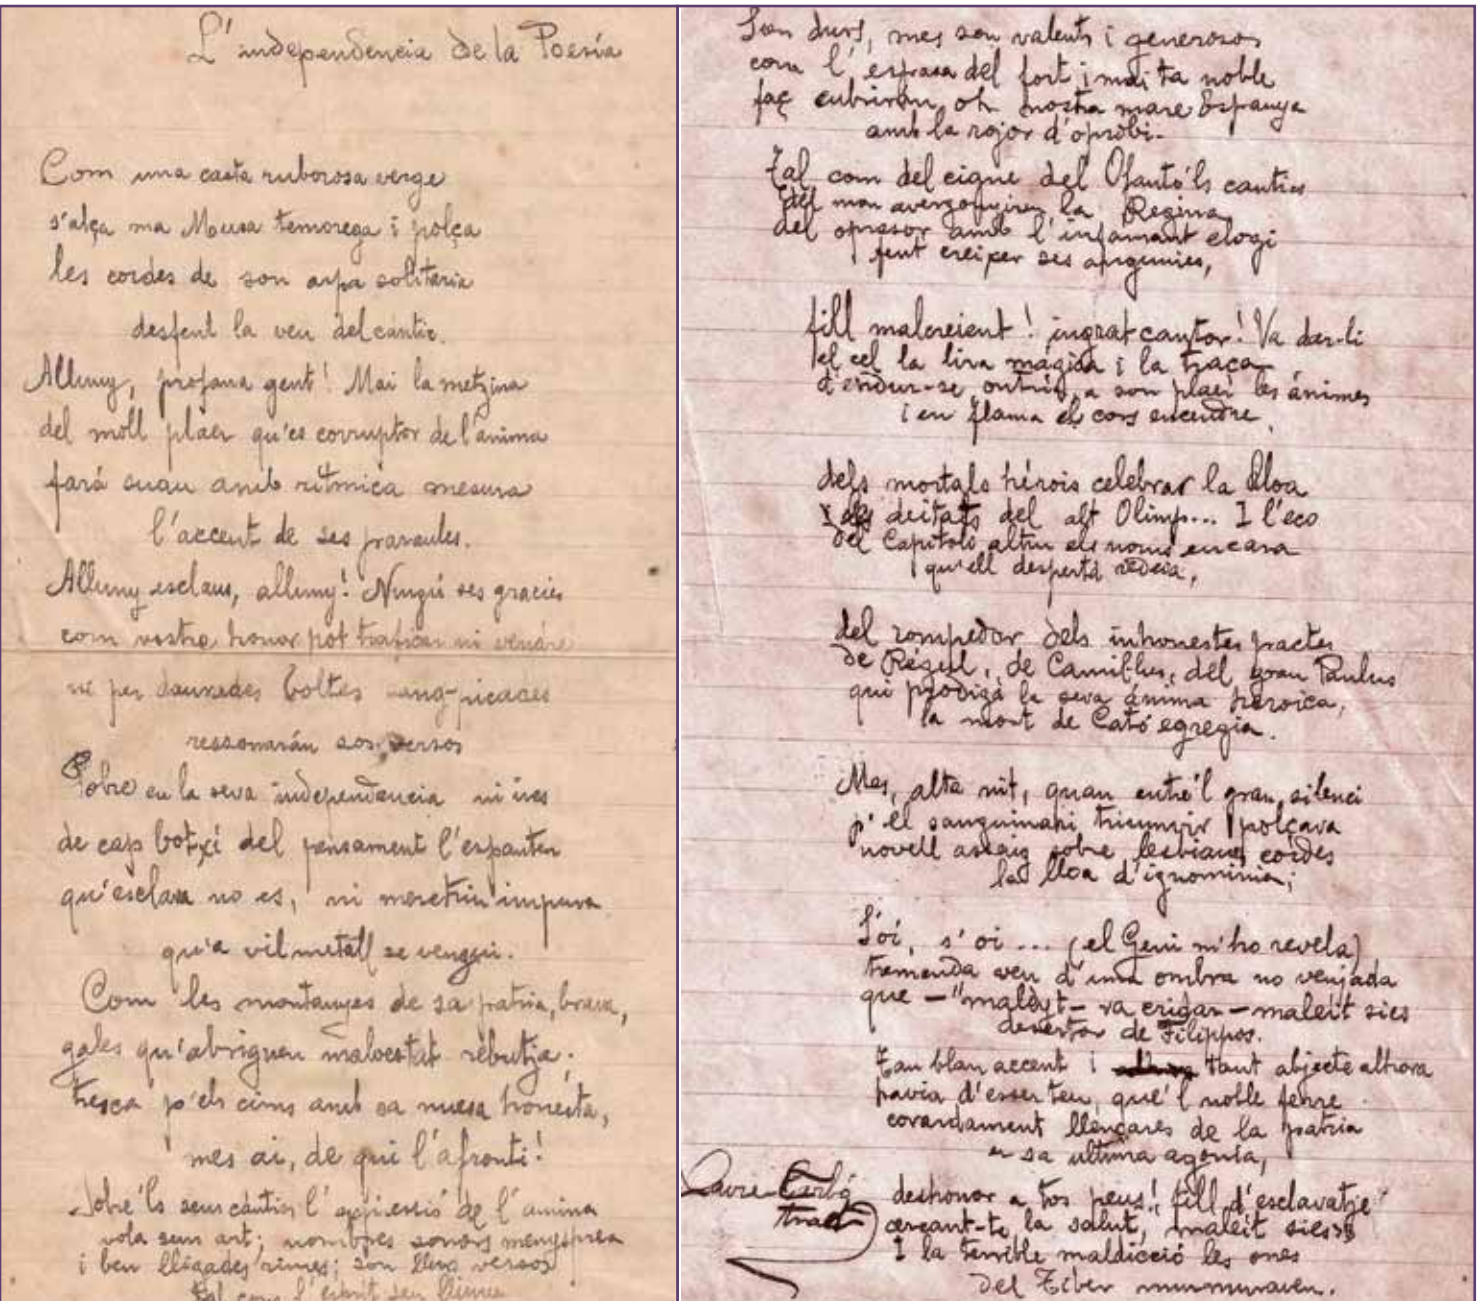 L'independencia de la Poesía
Com una casta ruborosa verge
s'alça ma Musa temorega i polça
les cordes de son arpa solitaria
desfent la veu del cantic.
Alluny, profana gent! Mai la metzina
del moll plaer qu'es corruptor de l'ánima
fará suau amb rítmica mesura
l'accent de ses paraules.
Alluny esclaus, alluny! Ningú ses gracies
com vostre honor pot traficar ni vendre
ni per daurades boltes
ressonarán sos versos
Pobre en la seva independencia ni
de cap botxí del pensament l'espanten
qu'esclava no es, ni meretriu impura
qu'a vil metall se vengui.
Com les montanyes de sa patria, brava,
gales qu'abriguen malvestat rebutja;
tresca p'els cims amb sa nuesa honesta,
mes ai, de qui l'afronti!
Sobre'ls seus cántics l'expressió de l'ánima
vola sens art; nombres sonors menysprea
i ben lligades rimes; són llurs versos
tal com l'esprit seu lliures
Son durs, mes son valents i generosos
com l'espasa del fort i mai ta noble
faç cubrirán, oh nostra mare Espanya
amb la rojor d'oprobi.
Tal com del cigne del Ofantó'ls cantics
del mon avergonyiren, la Regina
del opresor amb l'infamant elogi
fent creixer ses
fill malcreient! ingrat cantor! Va dar-li
el cel la lira mágica i la traça
d'endur-se, a son plaer les ánimes
i en flama el cors encendre,
dels mortals hérois celebrar la lloa
i dels deitats del alt Olimp... I l'eco
del Capitoli altiu els noms encara
qu'ell despertá
del rompedor dels inhonestes pactes
de Régul, de Camillus, del gran Paulus
qui prodigá la seva ánima heroica,
la mort de Cató egregia.
Mes, alta nit, quan entre'l gran silenci
p'el sanguinari triumvir polçava
novell assaig sobre lesbianes cordes
la lloa d'ignominia;
S'oí, s'oí ... (el Geni m'ho revela)
tremenda veu d'una ombra no venjada
que —"maldit— va cridar — maleït sies
desertor de Filippos.
Tan blan accent i tant abjecte alhora
havia d'esser teu, que'l noble ferre
covardament llençares de la patria
en sa ultima agonía,
deshonor a tos peus! fill d'esclavatje
cerçant-te la salut, maleït sies»
I la terrible maldicció les ones
del Tiber murmuraven.
Xavier
trad